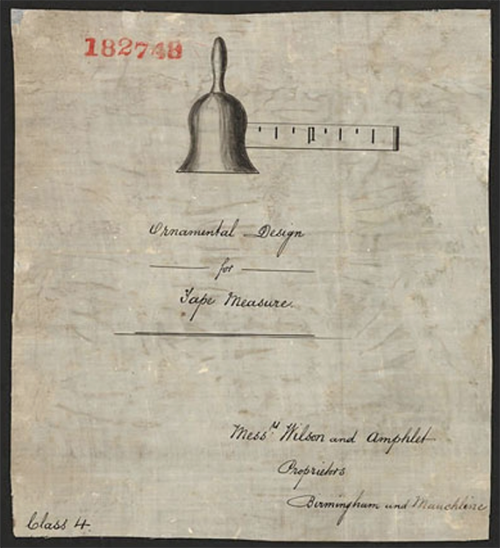 182748
Ornamental Design
for
Tape Measure.
Messrs Wilson and Amphlet
Proprietors
Birmingham and Mauchline
Class 4.